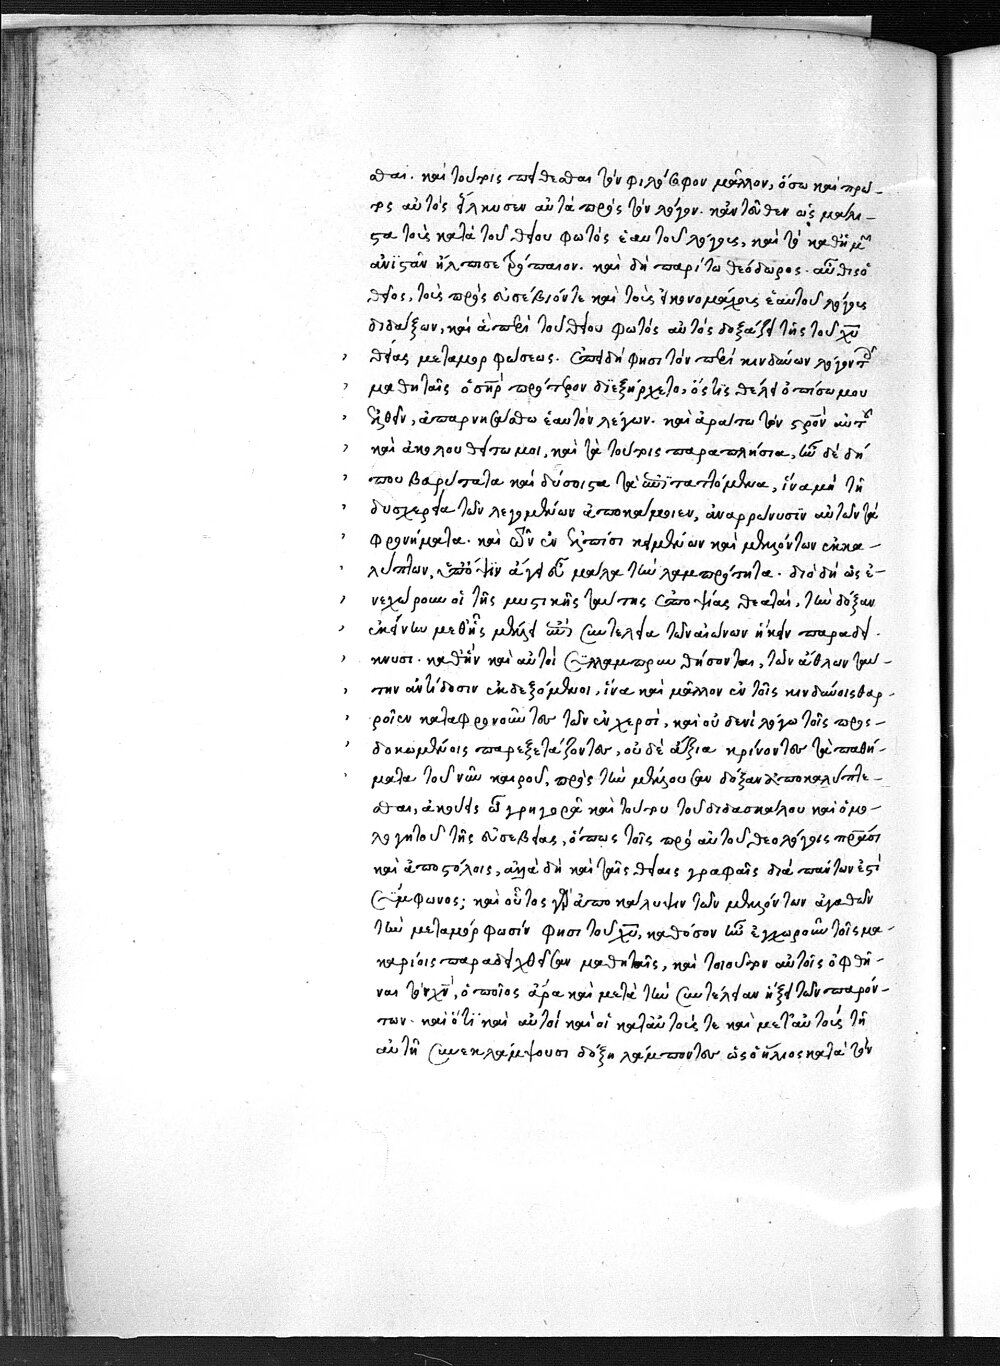 σθαι. καὶ τούτοις πείθεσθαι τὸν φιλόσοφον μᾶλλον, ὅσω καὶ πρῶ-
τος αὐτὸς εἵλκυσεν αὐτὰ πρὸς τὸν λόγον. κἀντεῦθεν ὡς μάλι-
στα τοὺς κατὰ τοῦ θείου φωτὸς ἑαυτοῦ λόγους, καὶ τὸ καθ' ἡμῶν
ἀνϊστᾶν ἤλπισε τρόπαιον. καὶ δὴ παρίτω θεόδωρος αὖθις ὁ
θεῖος, τοὺς πρὸς εὐσέβιόν τε καὶ τοὺς εἰκονομάχους ἑαυτοῦ λόγους
διδάξων, καὶ ἃ περὶ τοῦ θείου φωτὸς αὐτὸς δοξάζει τῆς τοῦ χῦ
θείας μεταμορφώσεως. ἐπειδή φησι τὸν περὶ κινδύνων λόγον τοῖς
μαθηταῖς ὁ σὴρ πρότερον διεξήρχετο, ὅστις θέλει ὀπίσω μου
ἐλθεῖν, ἀπαρνησάσθω ἑαυτὸν λέγων. καὶ ἀράτω τὸν στρὸν αὐτοῦ
καὶ ἀκολουθείτω μοι, καὶ τὰ τούτοις παραπλήσια, ἦν δὲ δή
που βαρύτατα καὶ δύσοιστα τὰ ἐπιταττόμενα, ἵνα μὴ τῇ
δυσχερεία τῶν λεγομένων ἀποκάμοιεν, ἀναρρώνυσϊν αὐτῶν τὰ
φρονήματα. καὶ τῶν ἐν ἐλπίσι κειμένων καὶ μενόντων ἐκκα-
λύπτων, ὑπ' ὄψϊν ἄγει εὖ μάλα τὴν λαμπρότητα. διὸ δὴ ὡς ἐ-
νεχώρουν οἱ τῆς μυστικῆς ταύτης ἐποψίας θεαταὶ, τὴν δόξαν
ἐκείνην μεθ' ἧς μέλλει ἐπὶ συντελεία τῶν αἰώνων ἥκειν παραδεί-
κνυσι. καθ' ἣν καὶ αὐτοὶ συλλαμπρυνθήσονται, τῶν ἄθλων ταύ-
την ἀντίδοσιν ἐκδεξόμενοι, ἵνα καὶ μᾶλλον ἐν τοῖς κινδύνοις θαρ-
ροῖεν καταφρονοῦντες τῶν ἐν χερσὶ, καὶ οὐδενὶ λόγω τοῖς προσ-
δοκωμένοις παρεξετάζοντες, οὐδὲ ἄξια κρίνοντες τὰ παθή-
ματα τοῦ νῦν καιροῦ, πρὸς τὴν μέλλουσαν δόξαν ἀποκαλύπτε-
σθαι, ἀκούεις ὦ γρηγορᾶ καὶ τούτου τοῦ διδασκάλου καὶ ὁμο-
λογητοῦ τῆς εὐσεβείας, ὅπως τοῖς πρὸ αὐτοῦ θεολόγοις πράσι
καὶ ἀποστόλοις, ἀλλὰ δὴ καὶ ταῖς θείαις γραφαῖς διὰ πάντων ἐστὶ
σύμφωνος; καὶ οὗτος γὰρ ἀποκάλυψιν τῶν μενόντων ἀγαθῶν
τὴν μεταμόρφωσίν φησι τοῦ χῦ, καθόσον ἦν ἐγχωροῦν τοῖς μα-
καρίοις παραδειχθεῖσαν μαθηταῖς, καὶ τοιοῦτον αὐτοῖς ὀφθῆ-
ναι τὸν χν, ὁποῖος ἄρα καὶ μετὰ τὴν συντέλειαν ἥξει τῶν παρόν-
των. καὶ ὅτϊ καὶ αὐτοὶ καὶ οἱ κατ' αὐτούς τε καὶ μετ' αὐτοὺς τῇ
αὐτῇ συνεκλάμψουσι δόξη λάμποντες ὡς ὁ ἥλιος κατὰ τὸν